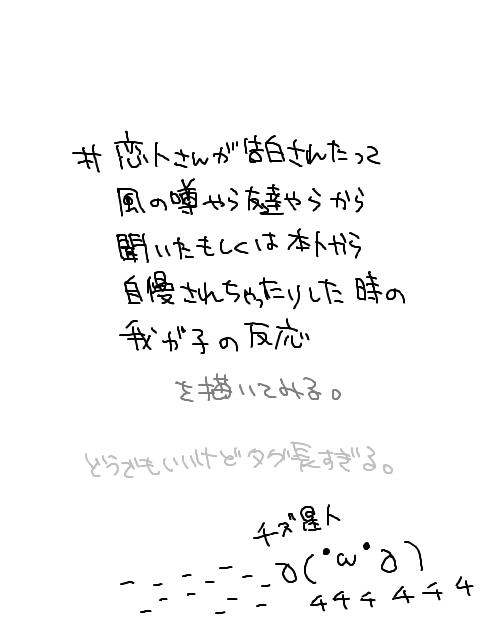 #恋人さんが告白されたって
風の噂やら友達やらから
聞いたもしくは本人から
自慢されちゃったりした時の
我が子の反応
を描いてみる。
どうでもいいけどタグ長すぎる。
チズ星人
∂(•ω•∂)